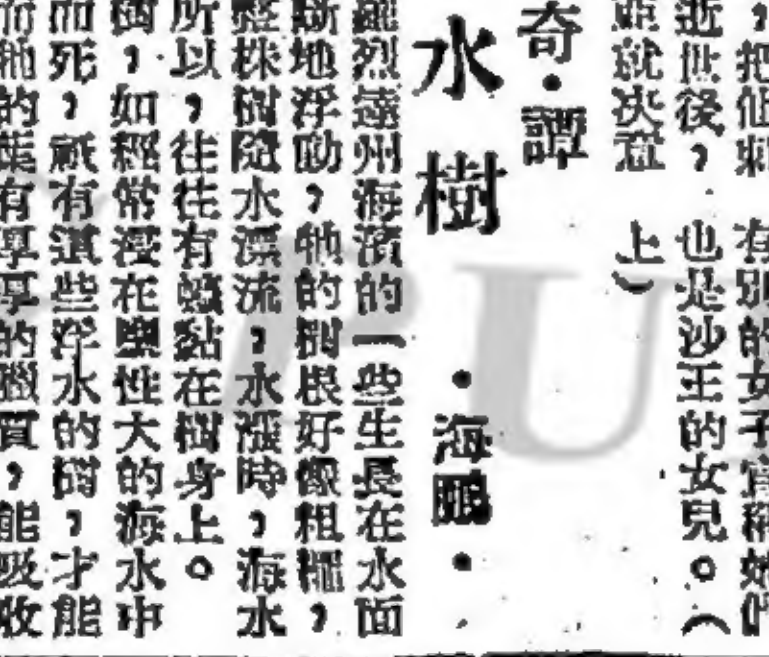 ，把他刺　有別的女子冒稱她們
逝世後，　也是沙王的女兒。（
就决　上）
奇·譚
水樹
·海鵬·
羅烈遠州海濱的一些生長在水面
斷地浮動，牠的樹根好像粗，
整株樹隨水漂流，水漲時，海水
所以，往往有黏在樹身上。
樹，如經常浸在鹽性大的海水中
而死，祇有這些浮水的樹，才能
而牠的葉有厚厚的臘質，能吸收
PU